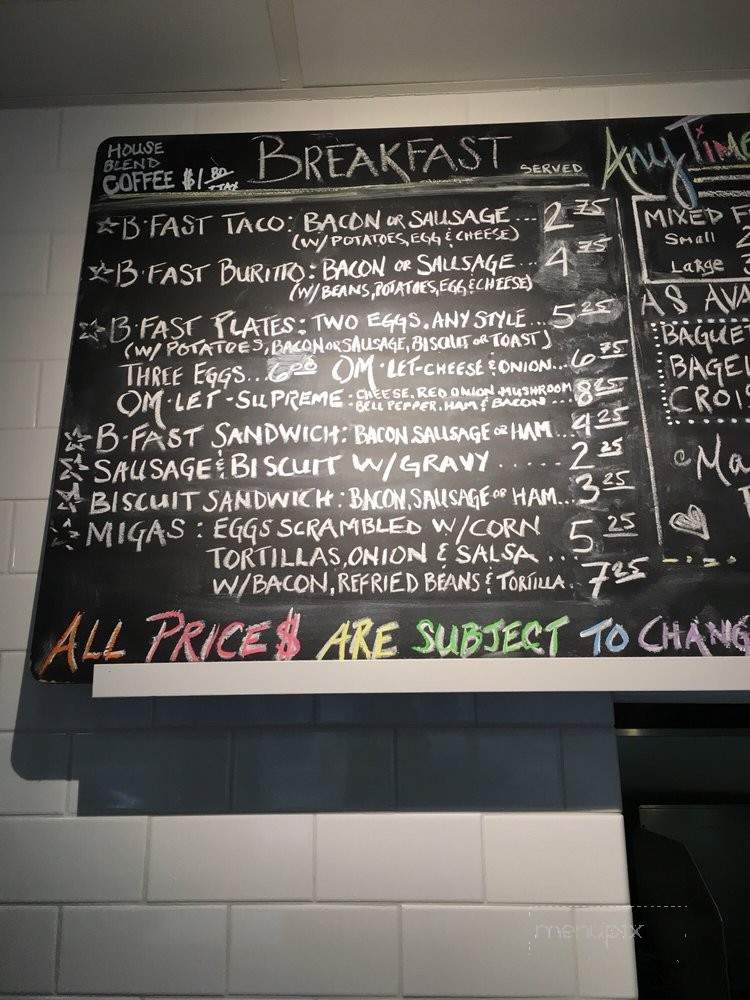 HOUSE
BLEND
COFFEE $1 80 +TAX
BREAKFAST SERVED AnyTime
B·FAST TACO: BACON OR SAUSAGE... 2 75
(W/ POTATOES, EGG & CHEESE)
B·FAST BURITTO: BACON OR SAUSAGE... 4 75
(W/ BEANS, POTATOES, EGG & CHEESE)
B·FAST PLATES: TWO EGGS. ANY STYLE... 5 25
(W/ POTATOES, BACON OR SAUSAGE, BISCUIT OR TOAST)
THREE EGGS... 6 OM·LET-CHEESE & ONION... 6 75
OM·LET-SUPREME: CHEESE, RED ONION, MUSHROOM
BELL PEPPER, HAM & BACON ... 8 25
B·FAST SANDWICH: BACON, SAUSAGE OR HAM... 4 25
SAUSAGE & BISCUIT W/ GRAVY ..... 2 25
BISCUIT SANDWICH: BACON, SAUSAGE OR HAM... 3 25
MIGAS: EGGS SCRAMBLED W/CORN 5 25
TORTILLAS, ONION & SALSA ...
W/BACON, REFRIED BEANS & TORTILLA.. 7 25
ALL PRICE$ ARE SUBJECT TO CHANG
MIXED F
Small 2
LaRge 3
AS AVA
BAGUE
BAGEL
CROIS
Ma
menupix